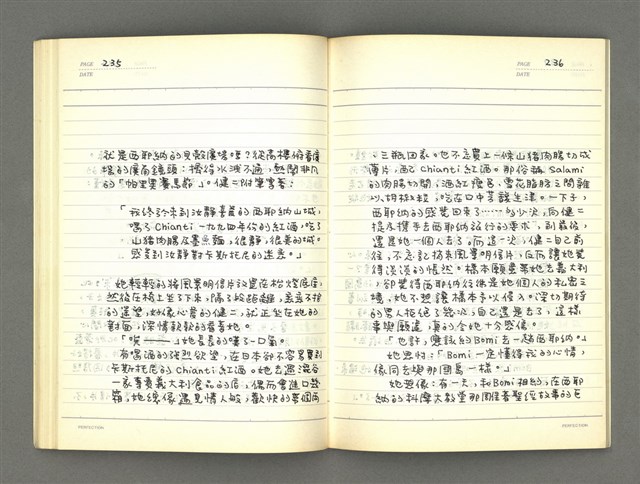 PAGE 235
DATE
就是西耶納的貝殼廣場嗎？從高樓俯看廣
場的廣角鏡頭：擠得水洩不通，熱鬧非凡
的「帕里奧賽馬節」。健二附筆寫著：
「我終於來到汝靜喜愛的西耶納山城，
喝了Chianti一九九四年份的紅酒，吃了
山豬肉腸及墨魚麵，很靜，很美的城。
感受到汝靜對卡斯托尼的迷戀。」
她輕輕的將風景明信片放置在枱燈底座，
然後在椅上坐了下來，隔了段距離，
的遙望，如似心愛的健二，就正坐在她的
對面，深情款款的看著她。
「唉——」她長長的嘆了一口氣。
有喝酒的強烈欲望，在日本卻不容易買到
卡斯托尼的Chianti紅酒。她去過澀谷
一家專賣義大利食品的店，偶而會進口幾
箱，她總像遇見情人般，歡快的買個兩
PERFECTION
PAGE 236
DATE
、三瓶回家。也不忘買上一條山豬肉腸切成
薄片，配Chianti紅酒。那俗稱Salami
的肉腸切開，酒紅瘦肉，雪花脂肪之間雜
以胡椒粒，吃在口中芬馥迷漫。一下子，
西耶納的感覺回來……
橋本攜手去西耶納旅行的要求，到最後，
還是她一個人去了。而這一次，健二自己前
往，不忘記捎來風景明信片，反而讓她覺
得深深的悵然。橋本願意帶她去義大利
，卻覺得西耶納彷彿是她個人的私密之
境，她不想讓橋本予以侵入。深切期待
的男人拒絕了幾次，自己還是去了，這樣
事與願違，真的令她十分感傷。
「也許，應該約Bomi去一趟西耶納。」
她思忖：「Bomi一定懂得我的心情，
像同去奧那國島一樣。」
她想像：有一天，和Bomi相約，在西耶
納的科摩大教堂那圍繞著聖經故事的
PERFECTION